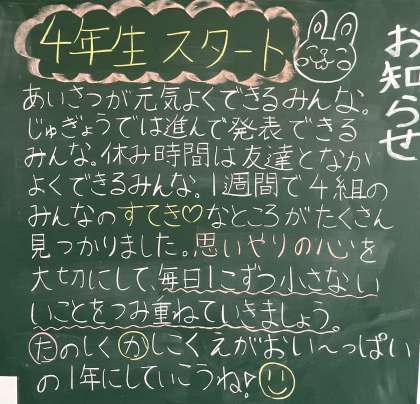 お知らせ
4年生 スタート
あいさつが元気よくできるみんな。
じゅぎょうでは進んで発表できる
みんな。休み時間は友達となか
よくできるみんな。1週間で4組の
みんなのすてき♡なところがたくさん
見つかりました。思いやりの心を
大切にして、毎日1こずつ小さない
いことをつみ重ねていきましょう。
たのしくかしこくえがおい〜っぱい
の1年にしていこうね!